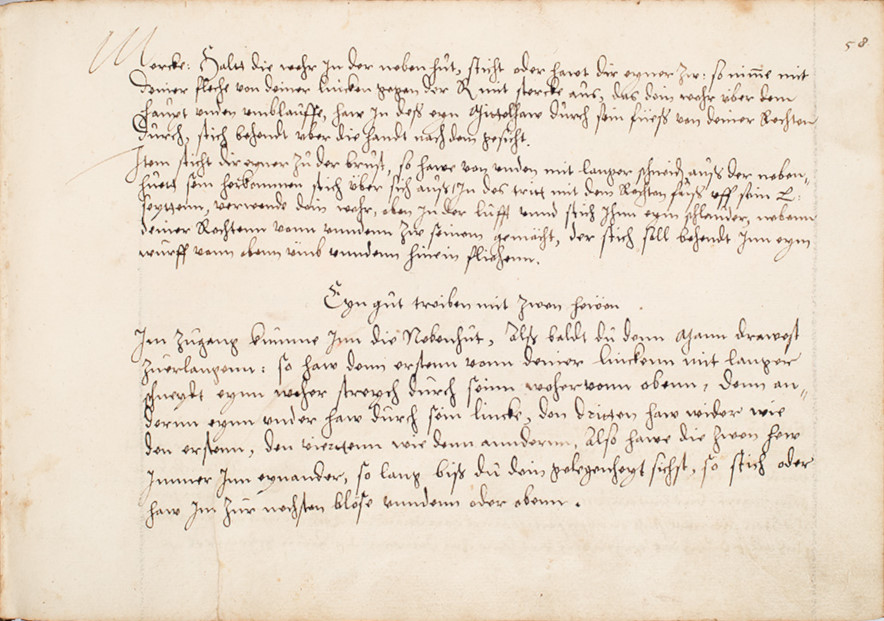 58
Mercke: Halts die wehr In der nebenhut, sticht oder hawt dir eyner zw: so nimme mit
deiner fleche von deiner lincken gegen der R mit stercke aus, das dein wehr über dem
haupt umblauffe, haw In des eyn Mittelhaw durch sein fües von deiner Rechten
durch, stich behendt über die handt nach dem gesicht.
Item sticht dir eyner zu der brust, so hawe von unden mit langer schneidt auß der neben-
huett sein herkommen stich über sich auß, In des tritt mit dem Rechten fuß uff sein L:
seyttenn, verwende dein wehr, oben In der lufft unnd stich Ihm eyn schlauder, nebenn
deiner Rechtenn vonn unndenn zw seinem gemächt, der stich soll behendt Inn eym
wurff vonn obenn umb unndenn hinein fliehenn.
Eyn gut treiben mit zwen hewen
Im zugang kumme Inn die Nebenhut, Als baldt du denn Mann drawest
zuerlangenn: so haw denn erstenn vonn deiner linckenn mit langer
schneydt eynn weher streych durch seinn weher vonn obenn, denn an-
dernn eynn under haw durch sein lincke, den dritten haw wider wie
den erstenn, den viertenn wie denn anndernn, Also hawe die zwen hew
Immer Inn eynander, so lang biß du dein gelegenheyt sichst, so stich oder
haw Im zur nechsten blöse unndenn oder obenn.